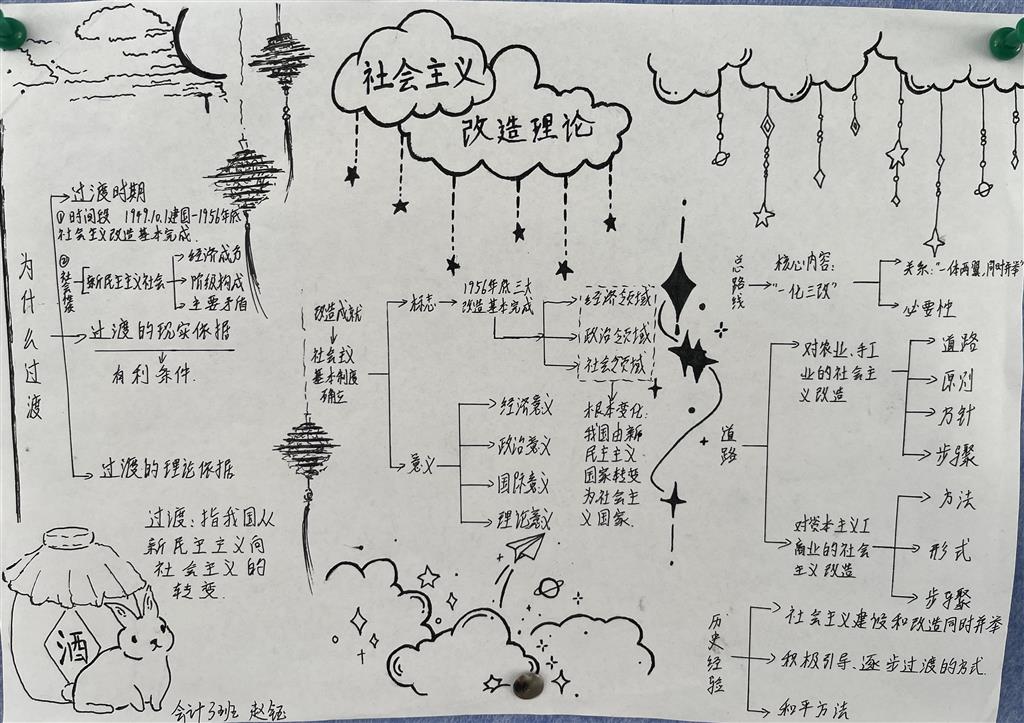 社会主义
改造理论
为什么过渡
过渡时期
① 时间段 1949.10.1建国-1956年底
社会主义改造基本完成.
②
新民主主义社会
经济成分
阶级构成
主要矛盾
过渡的现实依据
有利条件.
过渡的理论依据
过渡:指我国从
新民主主义向
社会主义的
转变.
酒
会计3班
改造成就
社会主义
基本制度
确立
标志
1956年底三大
改造基本完成
经济领域
政治领域
社会领域
根本变化:
我国由新
民主主义
国家转变
为社会主
义国家.
意义
经济意义
政治意义
国际意义
理论意义
总路线
核心内容:
"一化三改"
关系:"一体两翼,同时并举"
必要性
道路
对农业、手工
业的社会主
义改造
道路
原则
方针
步骤
对资本主义工
商业的社会
主义改造
方法
形式
步骤
历史经验
社会主义建设和改造同时并举
积极引导、逐步过渡的方式.
和平方法